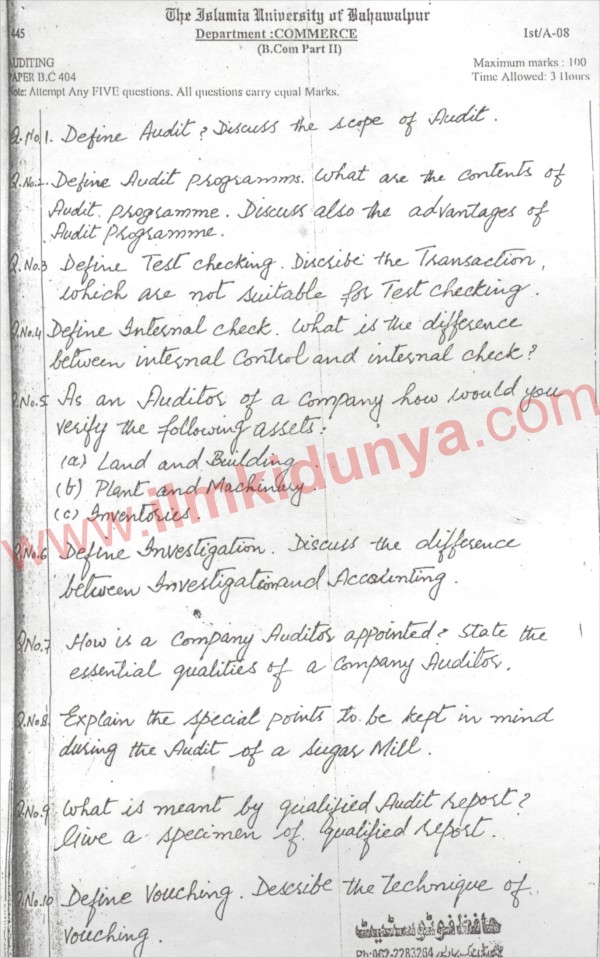 The Islamia University of Bahawalpur
445 Department :COMMERCE 1st/A-08
(B.Com Part II)
AUDITING Maximum marks : 100
PAPER B.C 404 Time Allowed: 3 Hours
Note: Attempt Any FIVE questions. All questions carry equal Marks.
Q.No.1. Define Audit? Discuss the scope of Audit.
Q.No.2. Define Audit programms. What are the contents of
Audit programme. Discuss also the advantages of
Audit Programme.
Q.No.3 Define Test checking. Discribe the Transaction,
which are not suitable for Test checking.
Q.No.4 Define Internal check. What is the difference
between internal Control and internal check?
Q.No.5 As an Auditor of a company how would you
verify the following assets:
(a) Land and Building.
(b) Plant and Machinery.
(c) Inventories.
www.ilmkidunya.com
Q.No.6 Define Investigation. Discuss the difference
between Investigation and Accounting.
Q.No.7 How is a Company Auditor appointed? State the
essential qualities of a Company Auditor.
Q.No.8. Explain the special points to be kept in mind
during the Audit of a Sugar Mill.
Q.No.9 What is meant by qualified Audit report?
Give a specimen of qualified report.
Q.No.10 Define Vouching. Describe the Technique of
Vouching.
حافظ فوٹو سٹیٹ
Ph:062-2283264